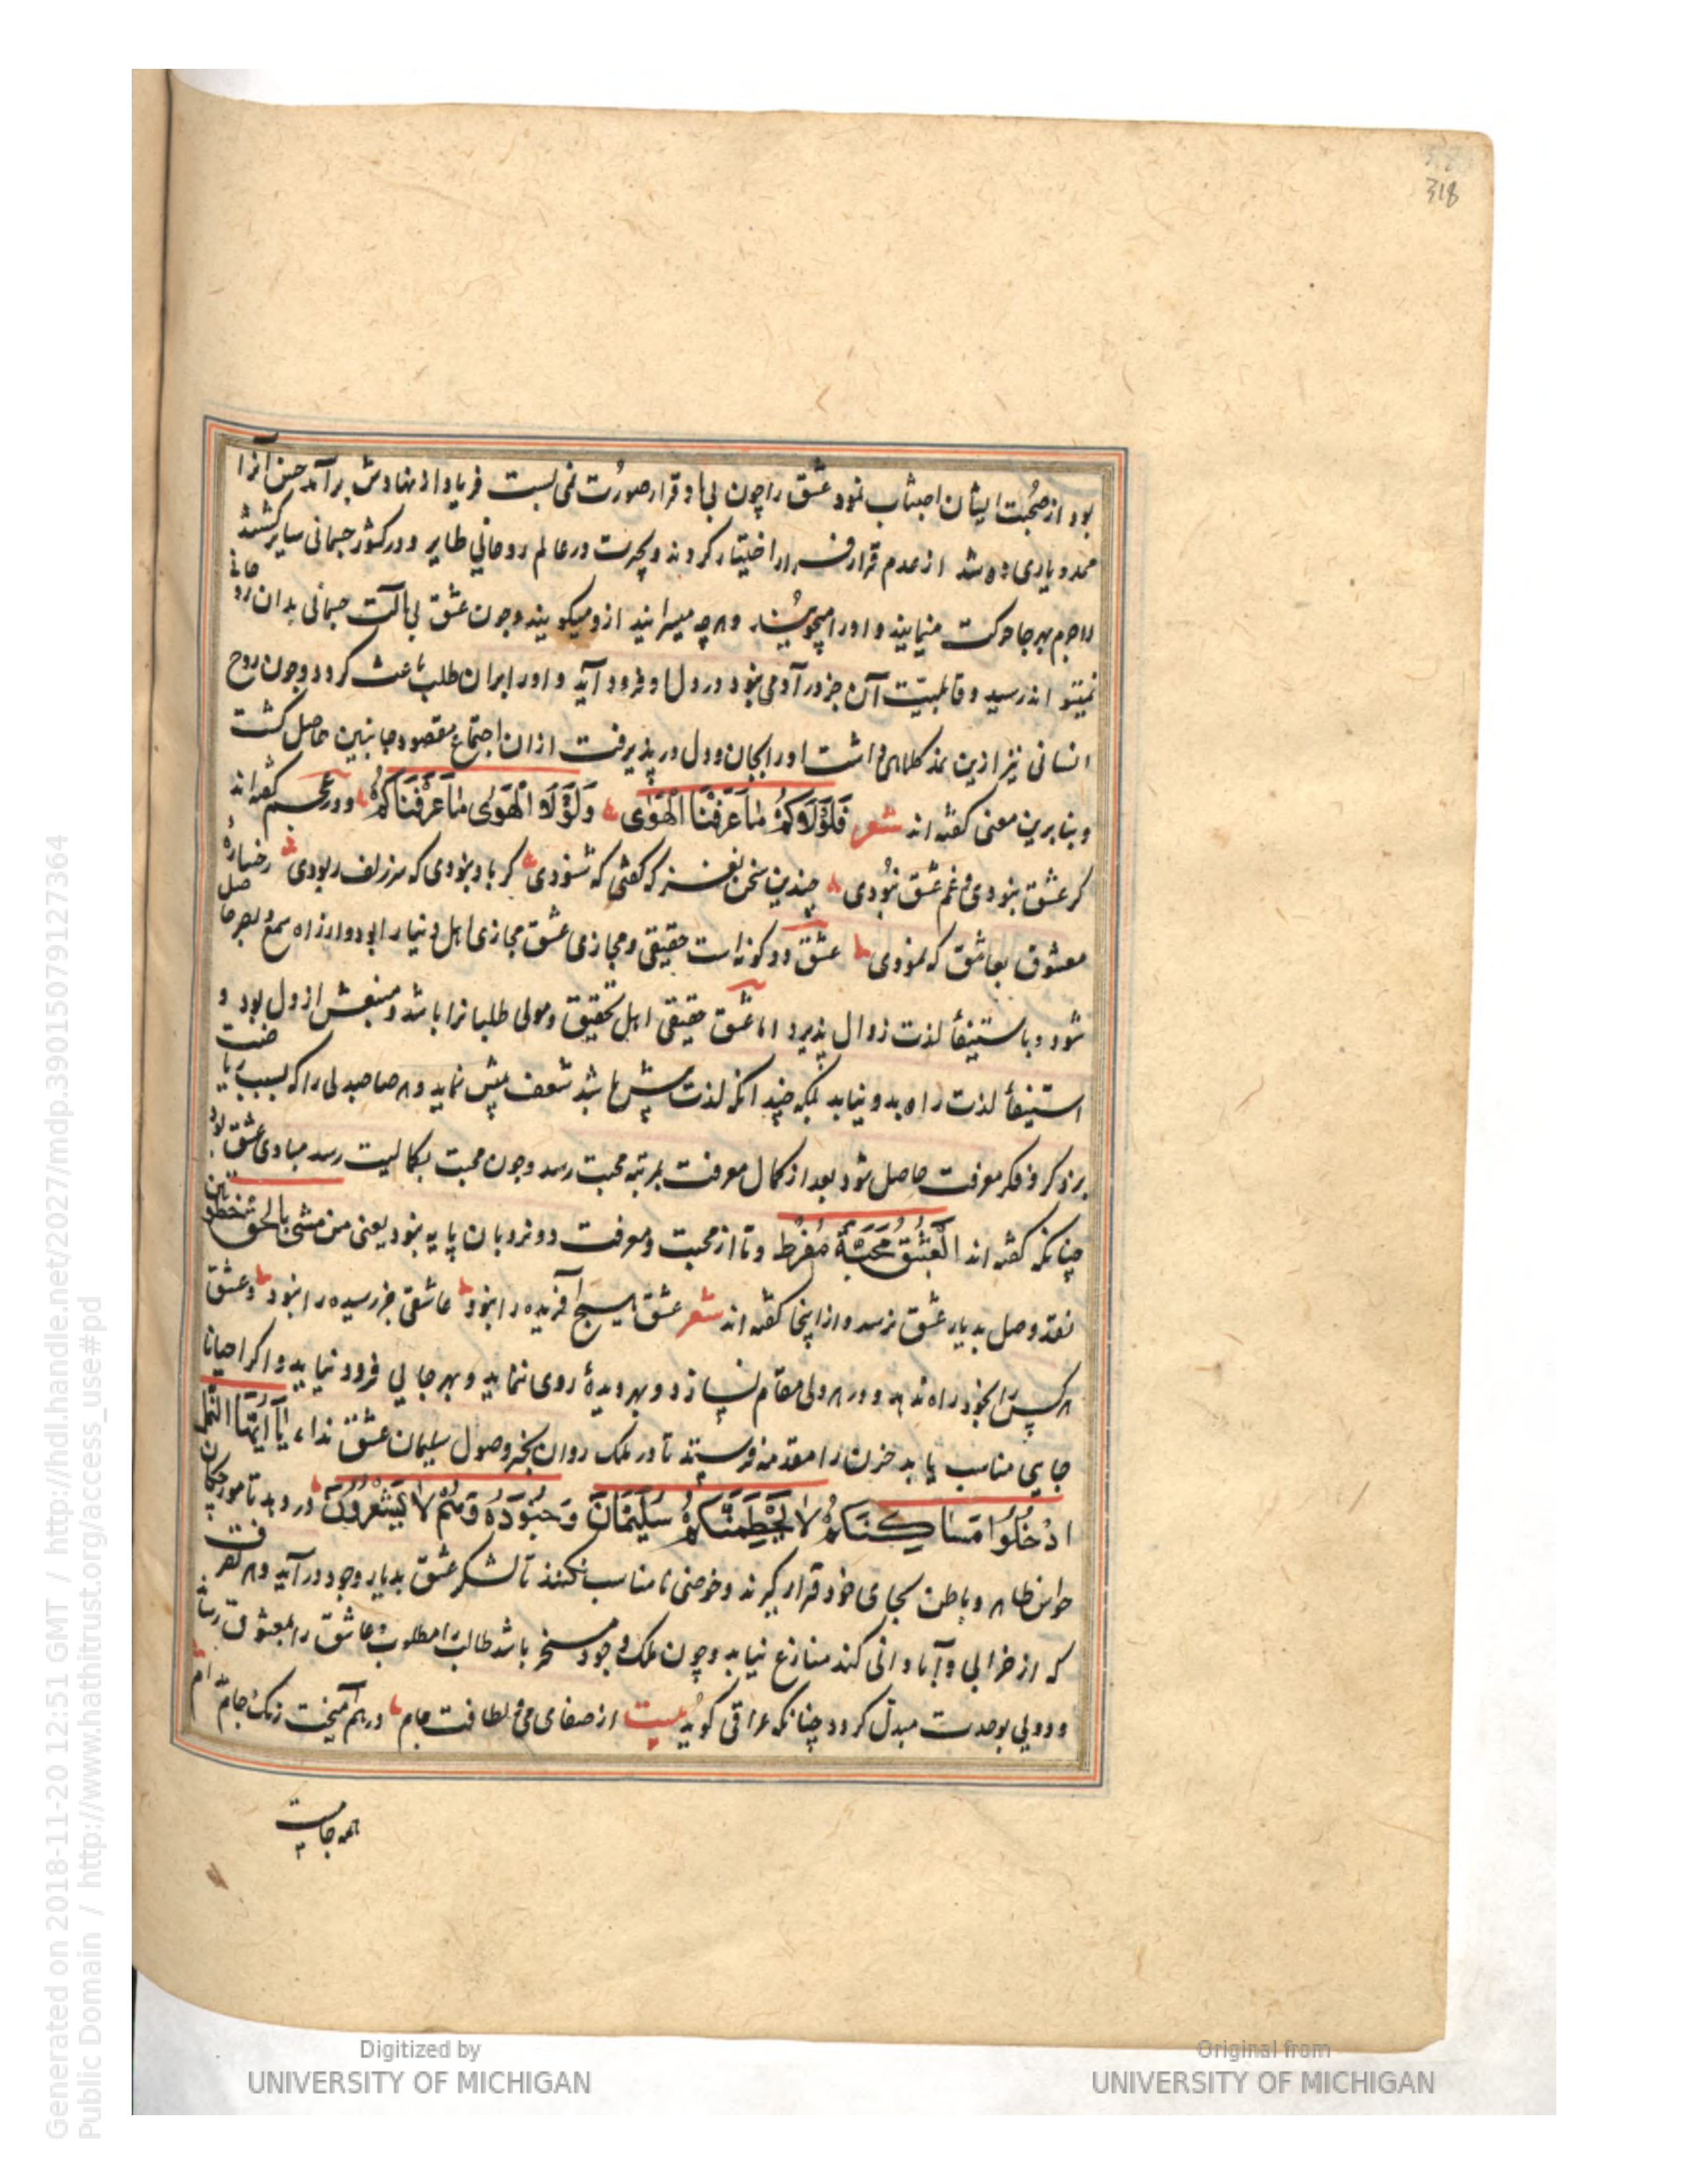 318
بود از صحبت ایشان اجتناب نمود عشق را چون بی او قرار صورت نمی بست فریاد از نهادش برآمد حسن آنرا
ممد و یاری ده شد از عدم قرار فرار اختیار کردند و بحیرت در عالم روحانی طایر و در کشور جسمانی سایر گشتند
لاجرم بهر جا حرکت مینمایند و او را میجویند و هرچه میسرایند ازو میگویند و چون عشق بی آلت جسمانی بدان روحانی
نمیتواند رسید و قابلیت آن جز در آدمی نبود در دل او فرود آید و او را بران طلب باعث گردد و چون روح
انسانی نیز ازین نمد کلاهی داشت او را بجان و دل در پذیرفت ازان اجتماع مقصود جانبین حاصل گشت
و بنا برین معنی گفته اند شعر فَلَوْلَاكُمْ مَا عَرَفْنَا الْهَوٰى وَلَوْلَا الْهَوٰى مَا عَرَفْنَاكُمْ و در عجم گفته اند
گر عشق نبودی و غم عشق نبودی چندین سخن نغز که گفتی که شنودی گر باد نبودی که سر زلف ربودی رخساره
معشوق بعاشق که نمودی عشق دو گونه است حقیقی و مجازی عشق مجازی اهل دنیا را بود و از راه سمع و بصر حاصل
شود و باستیفأ لذت زوال پذیرد اما عشق حقیقی اهل تحقیق و مولی طلبانرا باشد و منبعش از دل بود و
استیفأ لذت راه بدو نیابد بلکه چندانکه لذت بیش باشد شعف بیش نماید و هر صاحبدلی را که بسبب ریاضت
بر ذکر و فکر معرفت حاصل شود بعد از کمال معرفت بمرتبه محبت رسد و چون محبت بکمالیت رسد مبادی عشق بود
چنانکه گفته اند الْعِشْقُ مَحَبَّةٌ مُفْرِط و تا از محبت و معرفت دو نردبان پایه نبود یعنی من مشی بالحق خطوتین
نقد وصل بدیار عشق نرسد و از اینجا گفته اند شعر عشق هیچ آفریده را نبود عاشقی جز رسیده را نبود و عشق
هر کس را بخود راه ندهد و در هر دلی مقام نسازد و بهر دیدهٔ روی ننماید و بهر جایی فرود نیاید و اگر احیانا
جایی مناسب یابد حزن را مقدمه فرستد تا در ملک روان بخبر وصول سلیمان عشق نداء یَا أَیُّهَا النَّمْلُ
ادْخُلُوا مَسَاكِنَكُمْ لَا يَحْطِمَنَّكُمْ سُلَيْمَانُ وَجُنُودُهُ وَهُمْ لَا يَشْعُرُونَ در دهد تا مورچگان
حواس ظاهر و باطن بجای خود قرار گیرند و خوضی نامناسب نکنند تا لشکر عشق بدیار وجود درآید و هر تصرف
که از خرابی و آبادانی کند منازع نیابد و چون ملک وجود مسخر باشد طالب را مطلوب و عاشق را بمعشوق رساند
و دویی بوحدت مبدل گردد چنانکه عراقی گوید بیت از صفای می و لطافت جام درهم آمیخت رنگ جام مدام
همه جامیست
Generated on 2018-11-20 12:51 GMT / http://hdl.handle.net/2027/mdp.39015079127364
Public Domain / http://www.hathitrust.org/access_use#pd
Digitized by
UNIVERSITY OF MICHIGAN
Original from
UNIVERSITY OF MICHIGAN